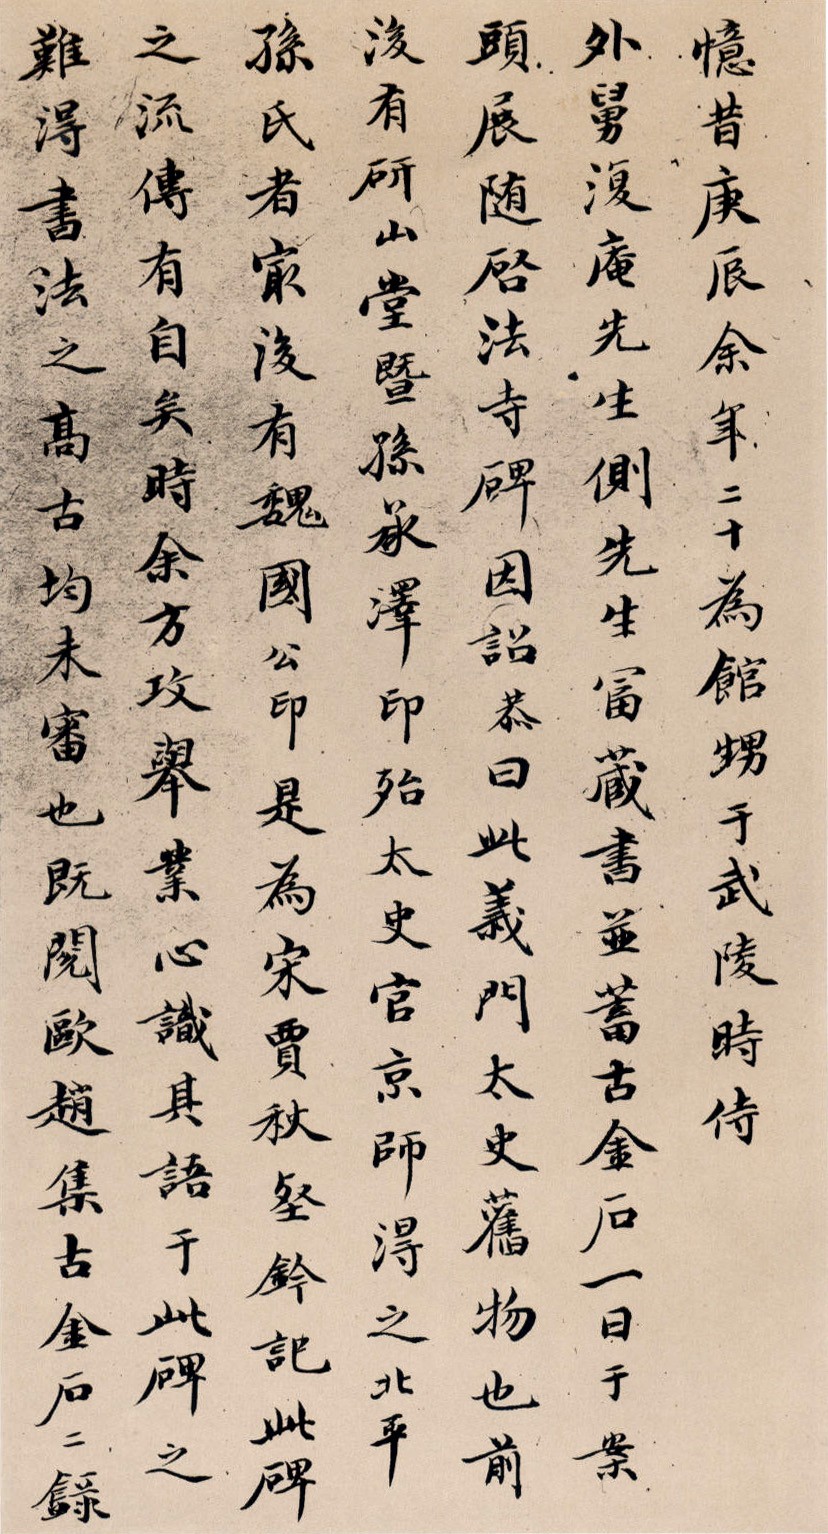 憶昔庚辰余年二十為館甥于武陵時侍
外舅復庵先生側先生富藏書並蓄古金石一日于案
頭展随啓法寺碑因詔恭曰此義門太史舊物也前
後有研山堂暨孫承澤印印殆太史官京師得之北平
孫氏者寂後有魏國公印是為宋賈秋壑鈐記此碑
之流傳有自矣時余方攻舉業心識其語于此碑之
難得書法之高古均未審也既閱歐趙集古金石二錄